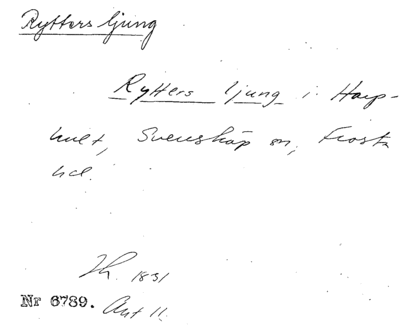 Rytters ljung
Rytters ljung i Harp-
hult, Svensköp sn, Frosta
hd.
Th. 1831
Nr 6789. Avt 11.